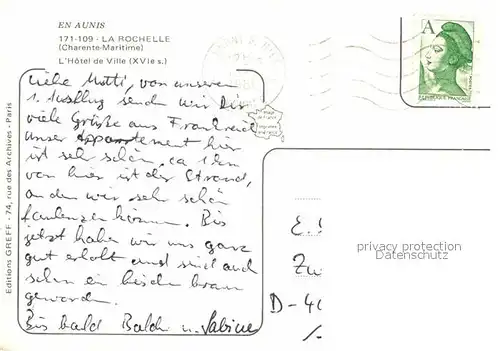 EN AUNIS
171-109 - LA ROCHELLE
(Charente-Maritime)
L'Hôtel de Ville (XVIe s.)
Liebe Mutti, von unserem
1. Ausflug senden wir Dir
viele Grüße aus Frankreich
Unser Appartement hier
ist sehr schön. ca 1 km
von hier ist der Strand,
an dem wir sehr schön
faulenzen können. Bis
jetzt haben wir uns ganz
gut erholt und sind auch
schon ein bischen braun
geworden.
Bis bald Baldi u. Sabine
Editions GREFF - 74, rue des Archives - Paris
A
privacy protection
Datenschutz
E.
Zw
D-40